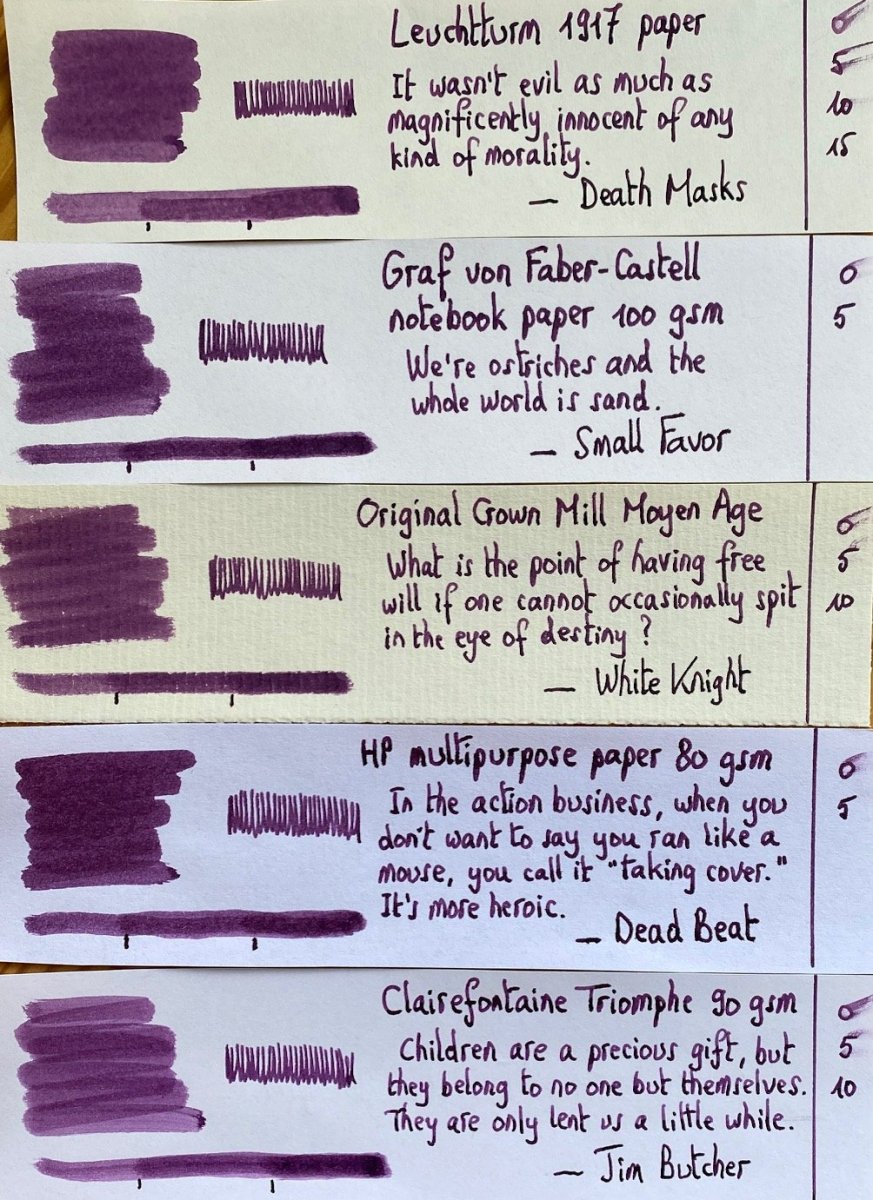 Leuchtturm 1917 paper
It wasn't evil as much as
magnificently innocent of any
kind of morality.
— Death Masks
0
5
10
15
Graf von Faber-Castell
notebook paper 100 gsm
We're ostriches and the
whole world is sand.
— Small Favor
0
5
Original Crown Mill Moyen Age
What is the point of having free
will if one cannot occasionally spit
in the eye of destiny ?
— White Knight
0
5
10
HP multipurpose paper 80 gsm
In the action business, when you
don't want to say you ran like a
mouse, you call it "taking cover."
It's more heroic.
— Dead Beat
0
5
Clairefontaine Triomphe 90 gsm
Children are a precious gift, but
they belong to no one but themselves.
They are only lent us a little while.
— Jim Butcher
0
5
10